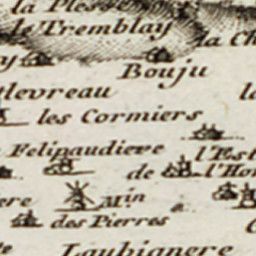 la Plesse
le Tremblay
la Ch
Bouju
llevreau
les Cormiers
Felipaudiere
l'Est
de
l'Hom
ere
Min
des Pierres
Laubianere